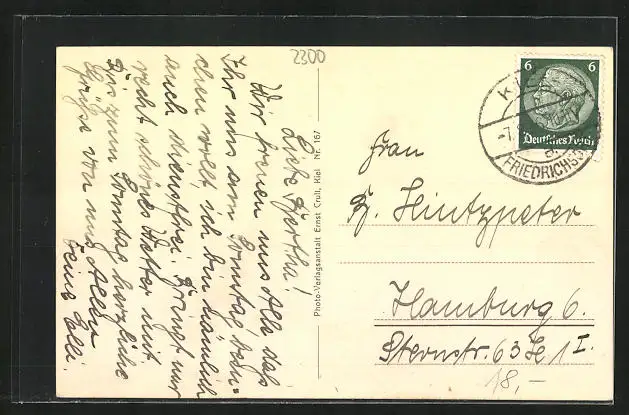 2300
Liebe Hertha!
Wir freuen uns Alle daß
Ihr uns am Sonntag besu-
chen wollt, ich bin nämlich
auch dienstfrei. Bringt nur
recht schönes Wetter mit
Dir zum Sonntag herzliche
Grüße von uns Allen
Deine Elli.
Photo-Verlagsanstalt Ernst Crull, Kiel Nr. 167
6 6
Deutsches Reich
K
-7.
FRIEDRICHSO
Frau
H. Hintzpeter
Hamburg 6.
Sternstr. 63 Hs 1 I.
18,-